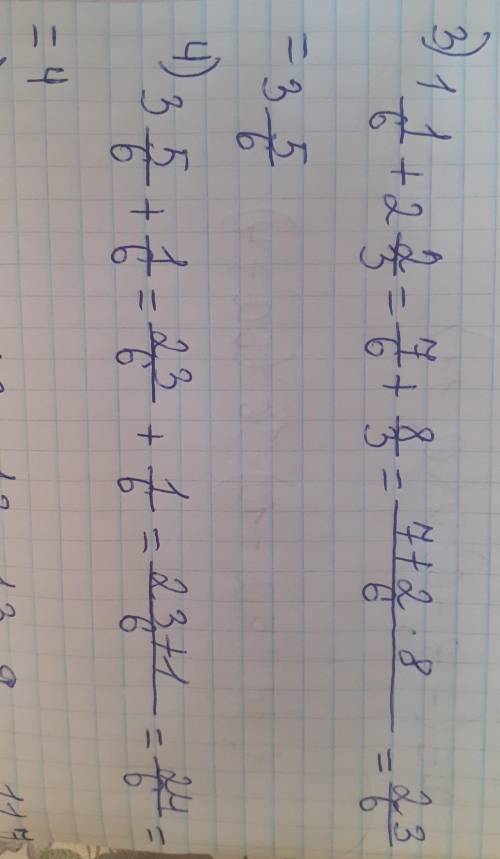 3) 1 1/6 + 2 2/3 = 7/6 + 8/3 = (7+2·8)/6 = 23/6
= 3 5/6
4) 3 5/6 + 1/6 = 23/6 + 1/6 = (23+1)/6 = 24/6 =
= 4